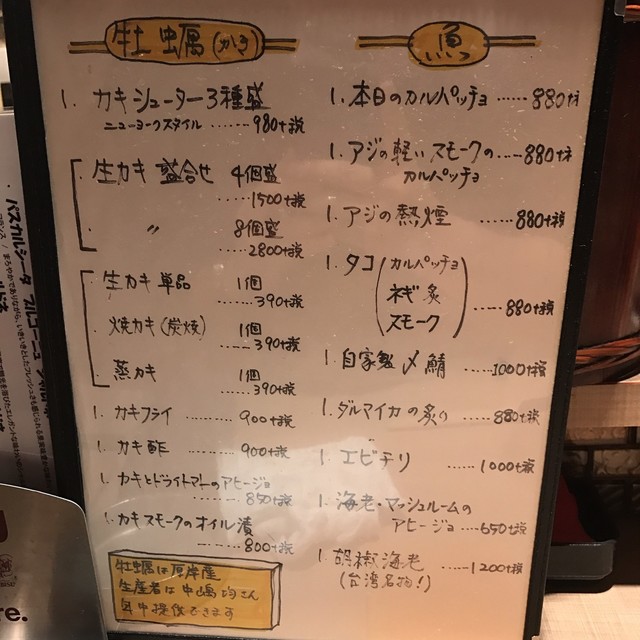 牡蠣(かき)
1. カキシューター3種盛
ニューヨークスタイル ......980+税
生カキ 盛合せ 4個盛
.....1500+税
〃 8個盛
.....2800+税
生カキ 単品 1個
.....390+税
焼カキ(炭焼) 1個
.....390+税
蒸カキ 1個
.....390+税
1. カキフライ ........900+税
1. カキ酢 .....900+税
1. カキとドライトマトのアヒージョ
......850+税
1. カキスモークのオイル漬
......800+税
牡蠣は厚岸産
生産者は中嶋均さん
年中提供できます
魚
1. 本日のカルパッチョ ......880+
1. アジの軽いスモークの....880+
カルパッチョ
1. アジの燻煙 ....880+税
1. タコ(カルパッチョ
ネギ炙
スモーク) .....880+税
1. 自家製〆鯖 ....1000+税
1. ダルマイカの炙り ....880+税
1. エビチリ .....1000+税
1. 海老・マッシュルームの
アヒージョ ....650+税
1. 胡椒海老 .....1200+税
(台湾名物!)
re.